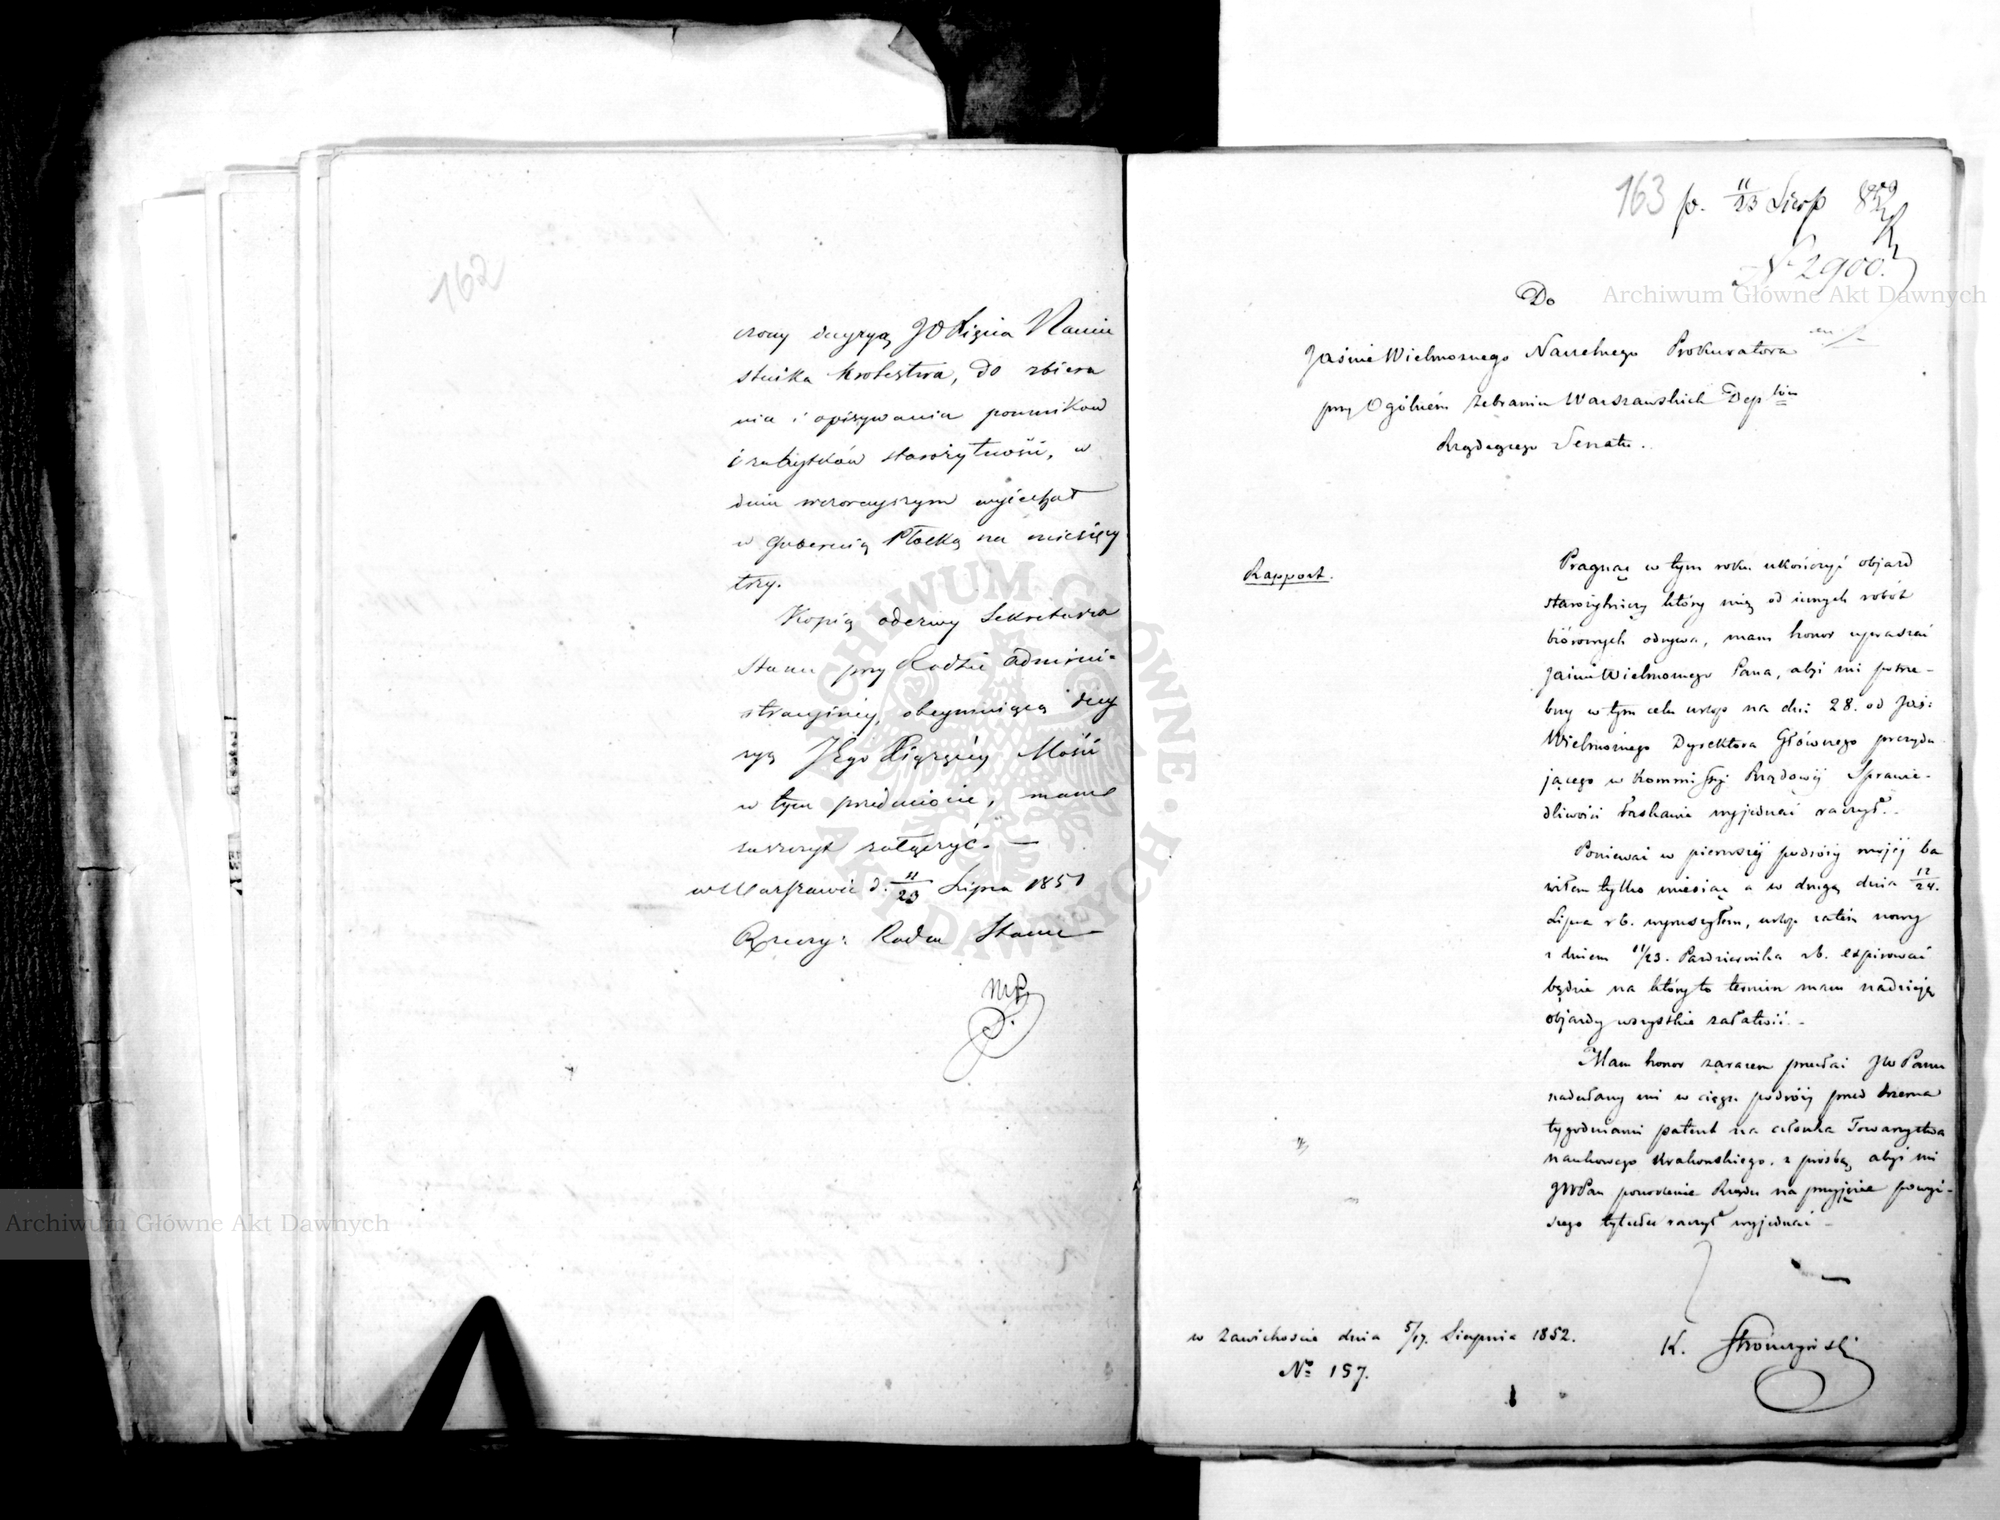 162
czony decyzyą JO Xięcia Namie
stnika Królestwa, do zbiera
nia i opisywania pomników
i zabytków starożytności, w
dniu wczorajszym wyjechał
w Gubernią Płocką na miesięcy
trzy.
Kopią odezwy Sekretarza
Stanu przy Radzie Admini-
stracyjnej, obejmującą decy
zyą JEgo Xiążęcej Mości
w tym przedmiocie, mam
zaszczyt załączyć. —
w Warszawie d. 11/23 Lipca 1851
Rzeczy: Radca Stanu
163 p. 11/23 Sierp 852
N 2900.
Do
Jaśnie Wielmożnego Naczelnego Prokuratora
przy Ogólném Zebraniu Warszawskich Deptów
Rządzącego Senatu.
Rapport.
Pragnąc w tym roku ukończyć objazd
starożytniczy który mię od innych robót
biórowych odrywa, mam honor upraszać
Jaśnie Wielmożnego Pana, abyś mi potrze-
bny w tym celu urlop na dni 28. od Jaś:
Wielmożnego Dyrektora Głównego prezydu
jącego w Kommissyi Rządowéj Sprawie-
dliwości łaskawie wyjednać raczył.
Ponieważ w pierwszéj podróży mojéj ba
wiłem tylko miesiąc a w drugą dnia 12/24.
Lipca r b. wyruszyłem, urlop zatém nowy
z dniem 11/23. Października r b. expirować
będzie na który to termin mam nadzieję
objazdy wszystkie załatwić. -
Mam honor zarazem przesłać JW Panu
nadesłany mi w ciągu podróży przed trzema
tygodniami patent na członka Towarzystwa
naukowego Krakowskiego, z prośbą abyś mi
JWPan pozwolenie Rządu na przyjęcie powyż-
szego tytułu raczył wyjednać -
w Zawichoście dnia 5/17. Sierpnia 1852.
No 157.
K. Stronczyński
Archiwum Główne Akt Dawnych
Archiwum Główne Akt Dawnych
ARCHIWUM GŁÓWNE AKT DAWNYCH